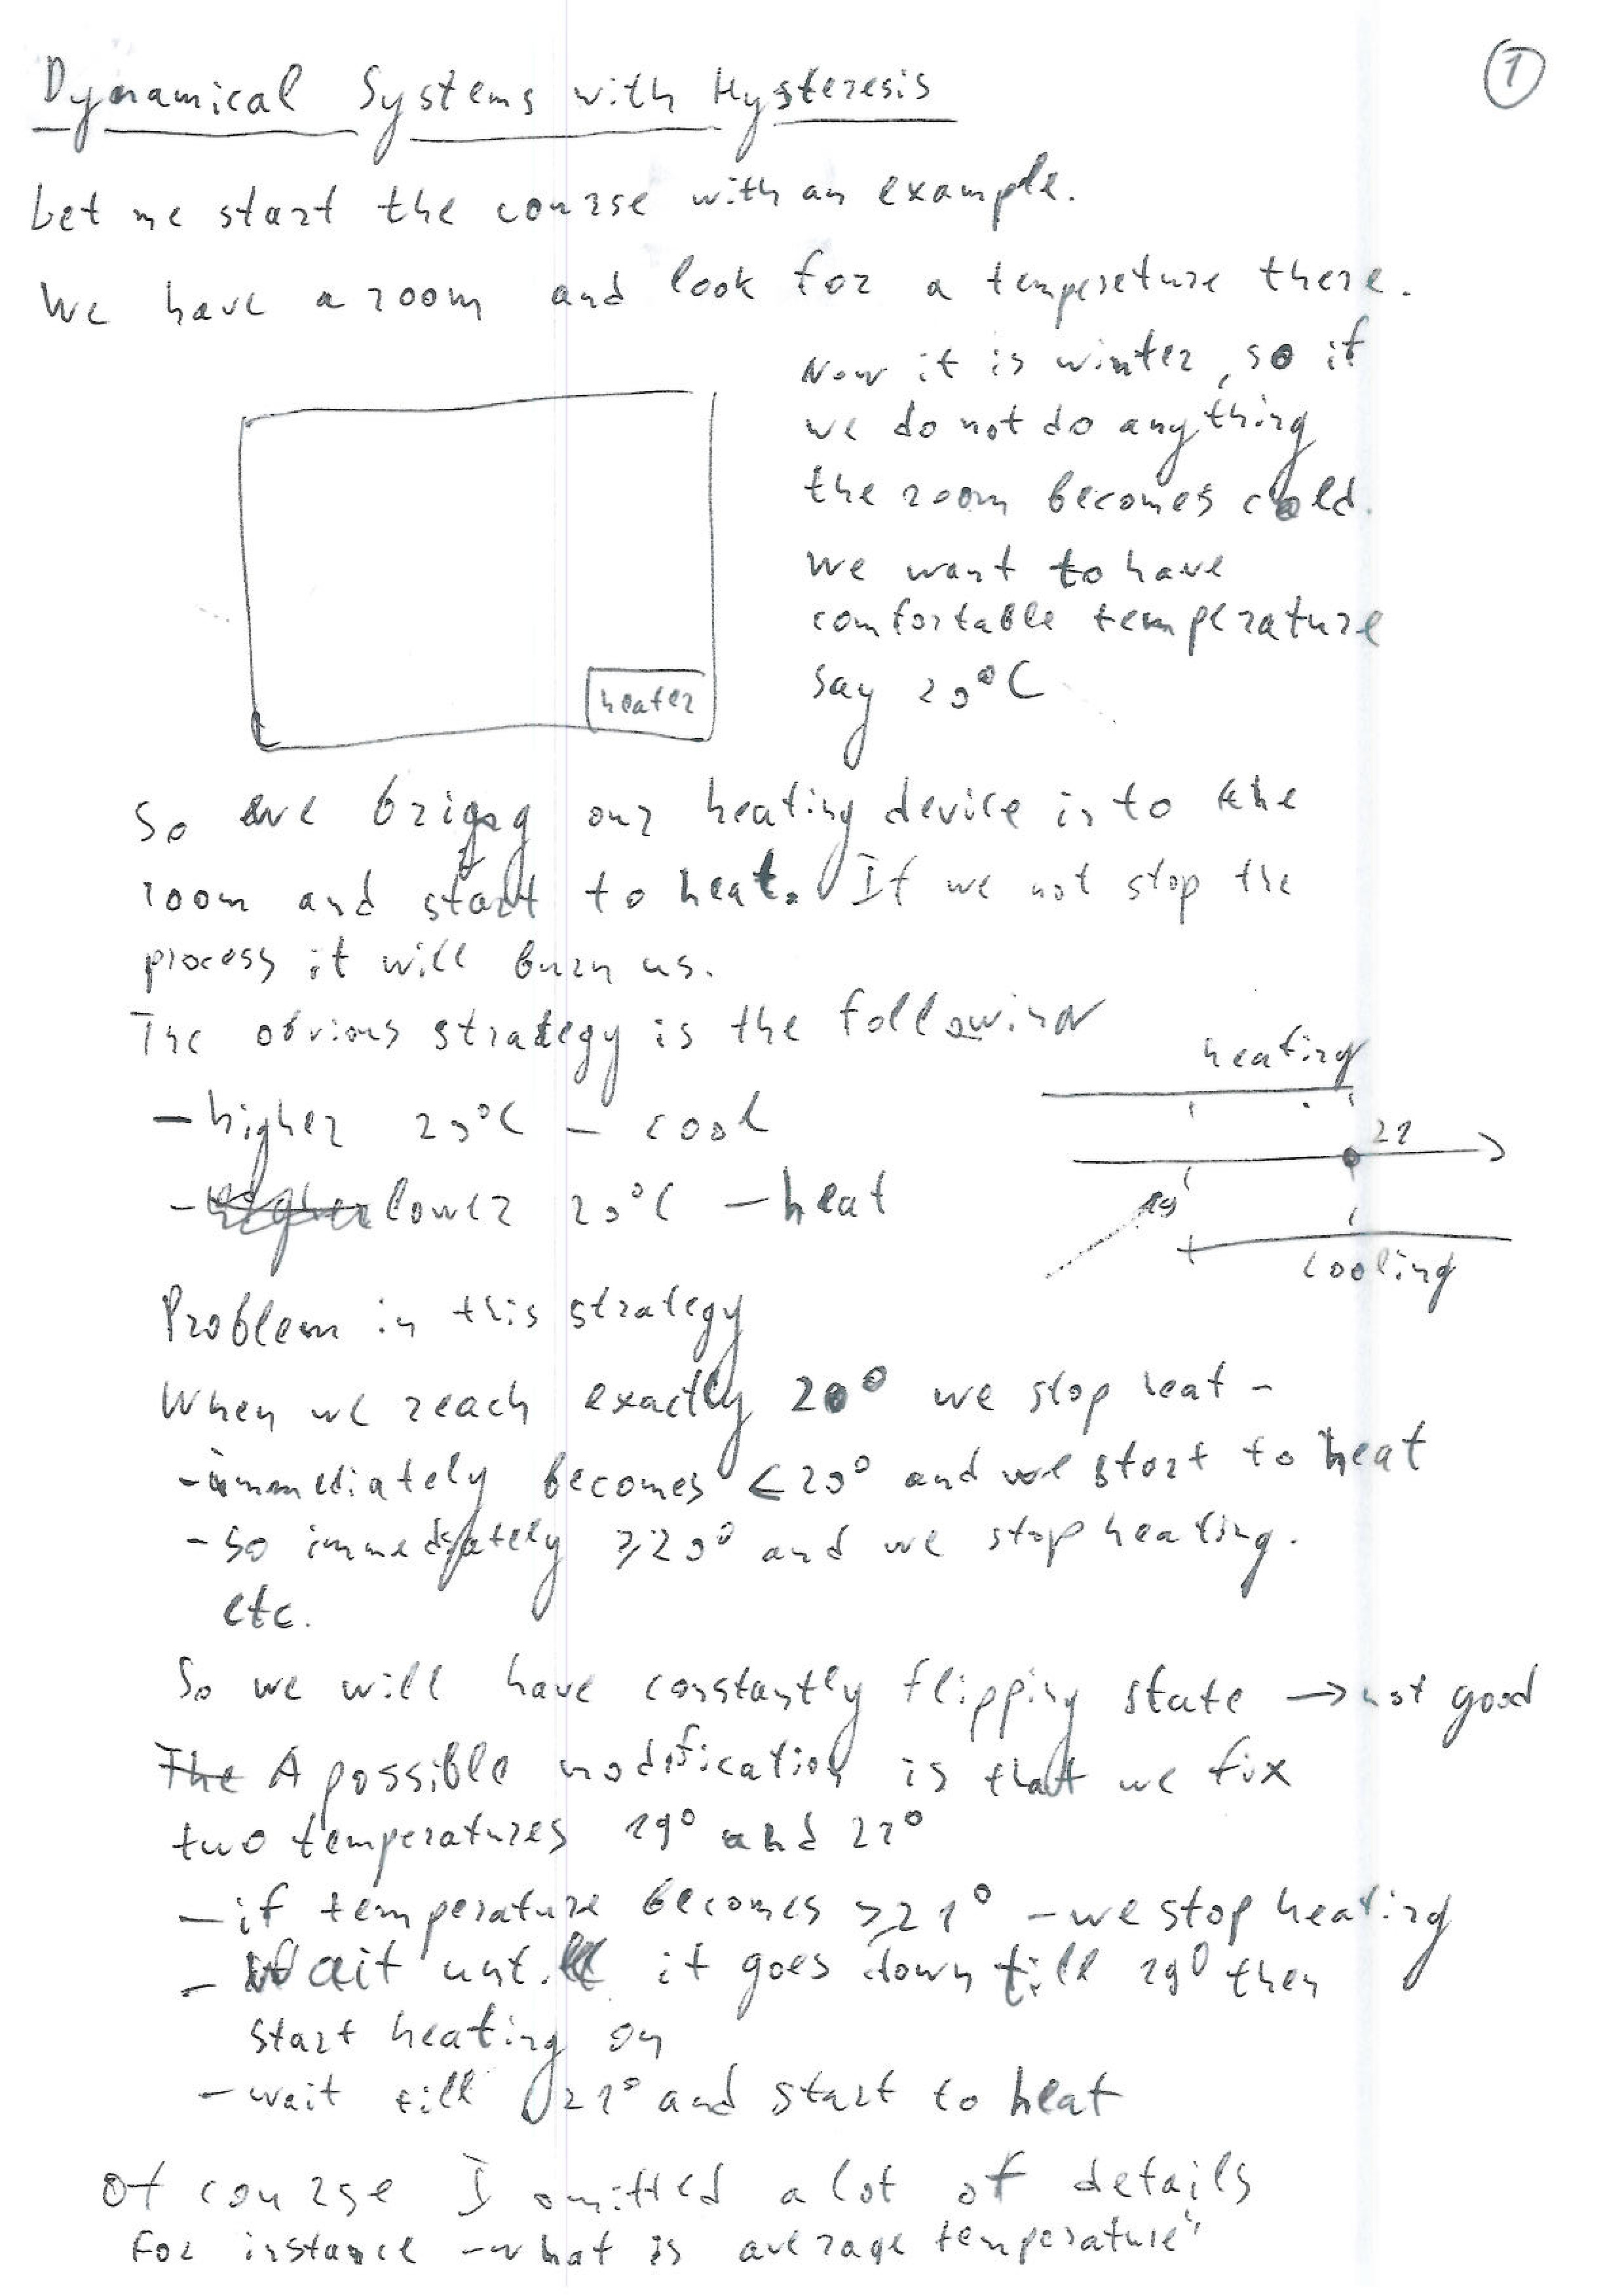 Dynamical Systems with Hysteresis
①
Let me start the course with an example.
We have a room and look for a temperature there.
Now it is winter, so if
we do not do anything
the room becomes cold.
We want to have
comfortable temperature
say 20°C
heater
So we bring our heating device into the
room and start to heat. If we not stop the
process it will burn us.
The obvious strategy is the following
heating
- higher 20°C - cool
21
- higher lower 20°C - heat
19
cooling
Problem in this strategy
When we reach exactly 20° we stop heat -
- immediately becomes <20° and we start to heat
- so immediately ⩾20° and we stop heating.
etc.
So we will have constantly flipping state → not good
The A possible modification is that we fix
two temperatures 19° and 21°
- if temperature becomes ⩾21° - we stop heating
- Wait until it goes down till 19° then
start heating on
- wait till 21° and start to heat
Of course I omitted a lot of details
For instance - what is average temperature"